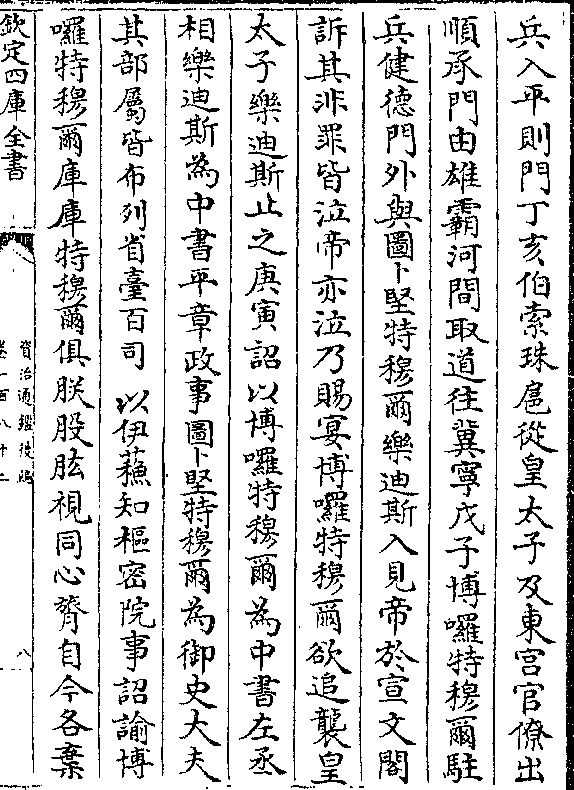 兵入平則門丁亥伯索珠扈從皇太子及東宫官僚出
順承門由雄霸河間取道往冀寧戊子博囉特穆爾駐
兵健德門外與圖卜堅特穆爾樂迪斯入見帝於宣文閣
訴其非罪皆泣帝亦泣乃賜宴博囉特穆爾欲追襲皇
太子樂迪斯止之庚寅詔以博囉特穆爾為中書左丞
相樂迪斯為中書平章政事圖卜堅特穆爾為御史大夫
其部屬皆布列省臺百司 以伊蘓知樞密院事詔諭博
囉特穆爾庫庫特穆爾俱朕股肱視同心膂自今各棄
欽定四庫全書
資治通鑑後編
卷一百八十二
八